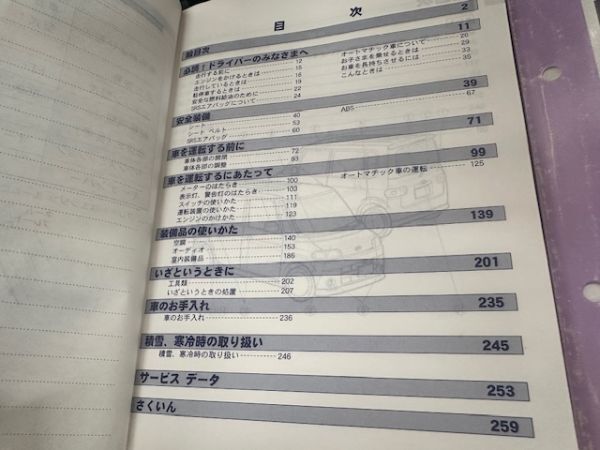 目 次
絵目次 2
必読！ドライバーのみなさまへ 11
走行する前に 12
エンジンをかけるときは 15
走行しているときは 16
駐停車するときは 19
安全な燃料給油のために 22
SRSエアバッグについて 24
オートマチック車について 26
お子さまを乗せるときは 29
お車を長持ちさせるには 33
こんなときは 35
安全装備 39
シート 40
シート ベルト 53
SRSエアバッグ 60
ABS 67
車を運転する前に 71
車体各部の開閉 72
車体各部の調整 93
車を運転するにあたって 99
メーターのはたらき 100
表示灯、警告灯のはたらき 103
スイッチの使いかた 111
運転装置の使いかた 119
エンジンのかけかた 123
オートマチック車の運転 125
装備品の使いかた 139
空調 140
オーディオ 153
室内装備品 186
いざというときに 201
工具類 202
いざというときの処置 207
車のお手入れ 235
車のお手入れ 236
積雪、寒冷時の取り扱い 245
積雪、寒冷時の取り扱い 246
サービス データ 253
さくいん 259